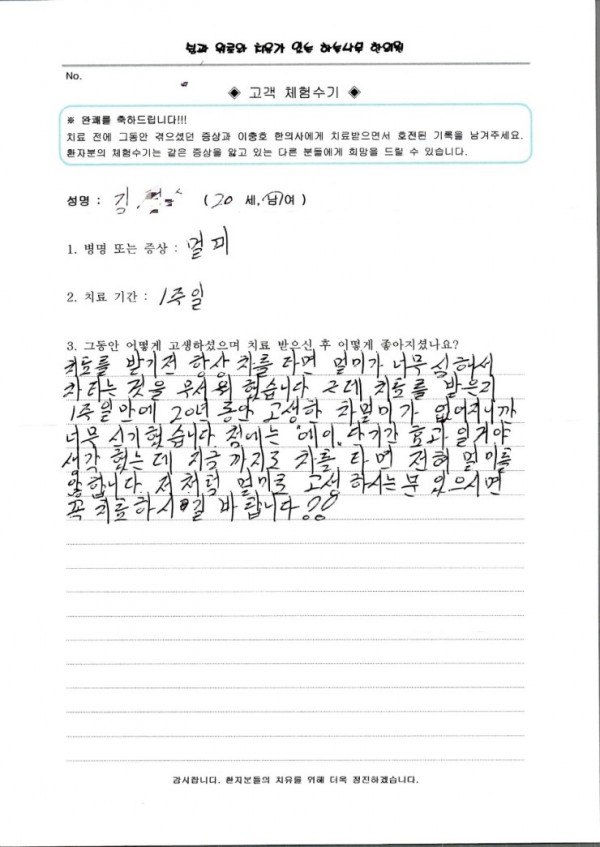 No.
◈ 고객 체험수기 ◈
※ 완쾌를 축하드립니다!!!
치료 전에 그동안 겪으셨던 증상과 이충호 한의사에게 치료받으면서 호전된 기록을 남겨주세요.
환자분의 체험수기는 같은 증상을 앓고 있는 다른 분들에게 희망을 드릴 수 있습니다.
성명 : 김 (20 세, 남/여)
1. 병명 또는 증상 : 멀미
2. 치료 기간 : 1주일
3. 그동안 어떻게 고생하셨으며 치료 받으신 후 어떻게 좋아지셨나요?
치료를 받기전 항상 차를 타면 멀미가 너무 심해서
차타는 것을 무서워 했습니다. 근데 치료를 받은지
1주일만에 20년 동안 고생한 차멀미가 없어지니까
너무 신기했습니다. 첨에는 "에이, 단기간 효과 일거야
생각 했는데 지금 까지도 차를 타면 전혀 멀미를
안합니다. 저처럼 멀미로 고생 하시는분 있으시면
꼭 치료하시길 바랍니다
감사합니다. 환자분들의 치유를 위해 더욱 정진하겠습니다.